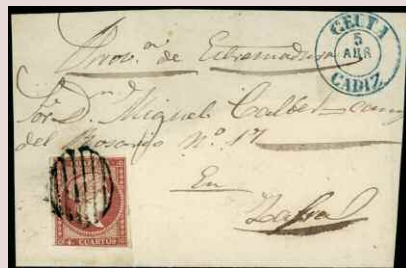 CEUTA
5
ABR
CADIZ
Prov.ª de Extremadura
Sor. D.n Miguel Calbet
del Rosario nº 17
En
Zafra
4 CUARTOS